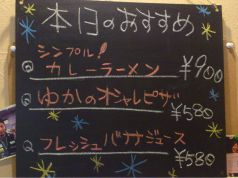 本日のおすすめ
シンプル!
カレーラーメン ¥900
ゆかのオシャレピザ ¥580
フレッシュバナナジュース ¥580